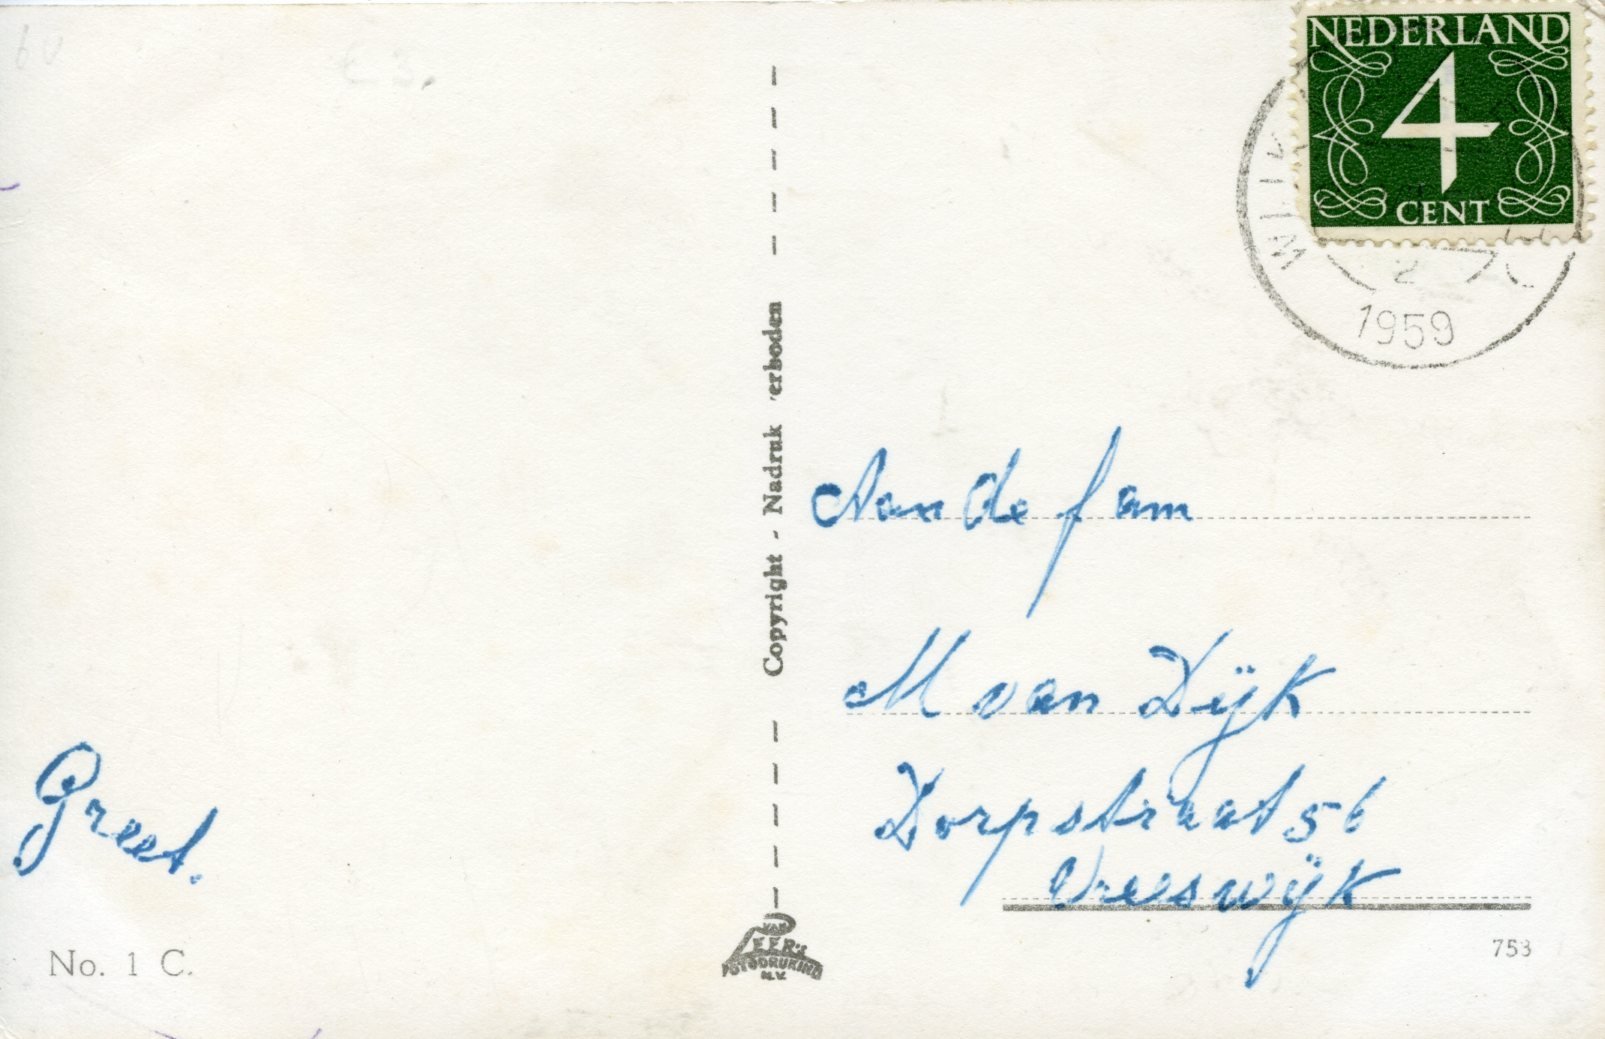 NEDERLAND
4
CENT
2
1959
Copyright - Nadruk verboden
Aan de fam
M van Dijk
Dorpstraat 56
Vreeswijk
Greet.
No. 1 C.
VAN
LEER'S
FOTODRUKIND
N.V.
753